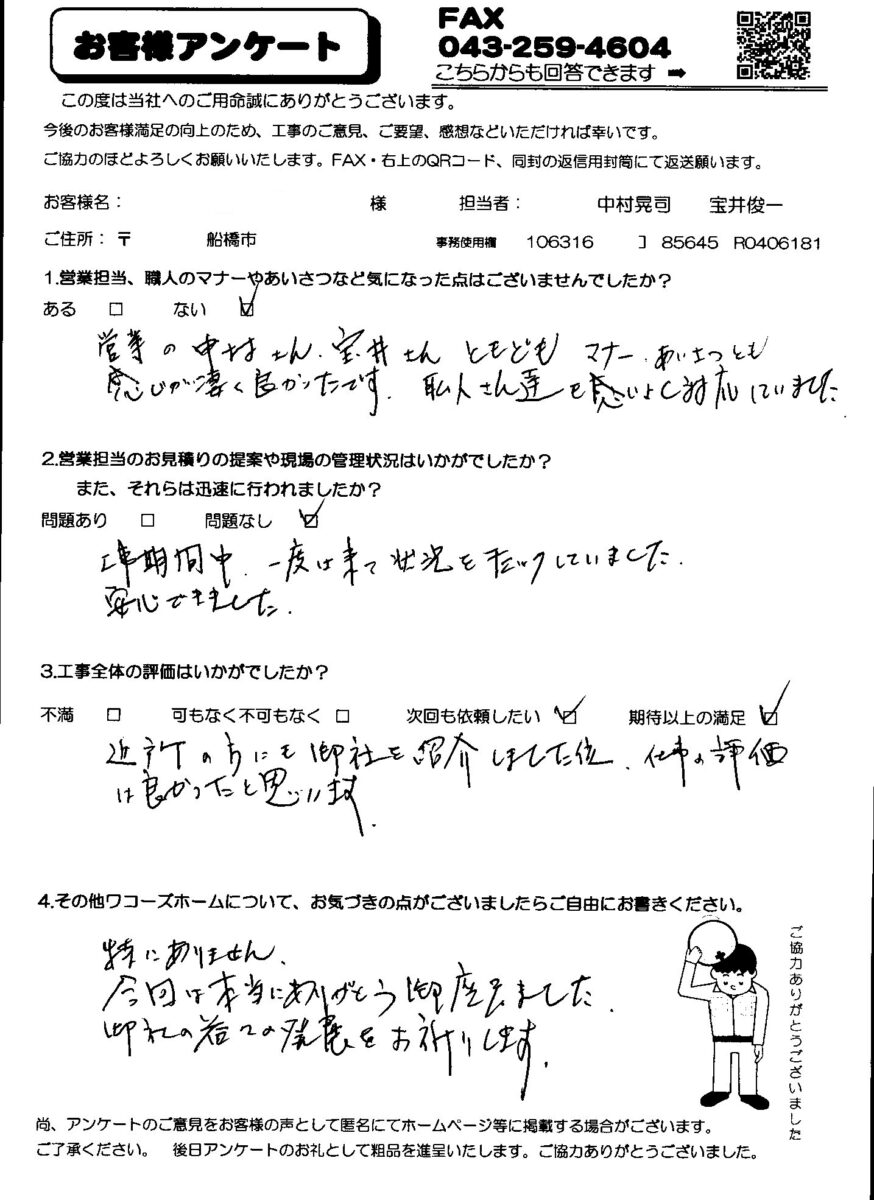 お客様アンケート
FAX
043-259-4604
こちらからも回答できます ➡
この度は当社へのご用命誠にありがとうございます。
今後のお客様満足の向上のため、工事のご意見、ご要望、感想などいただければ幸いです。
ご協力のほどよろしくお願いいたします。FAX・右上のQRコード、同封の返信用封筒にて返送願います。
お客様名： 様 担当者： 中村晃司 宝井俊一
ご住所：〒 船橋市 事務使用欄 106316 85645 R0406181
1.営業担当、職人のマナーやあいさつなど気になった点はございませんでしたか？
ある □ ない ☑
営業の中村さん、宝井さん ともども マナー、あいさつとも
感じが凄く良かったです。 職人さん達も感じよく対応していました
2.営業担当のお見積りの提案や現場の管理状況はいかがでしたか？
また、それらは迅速に行われましたか？
問題あり □ 問題なし ☑
工事期間中、一度は来て状況をチェックしていました。
安心できました。
3.工事全体の評価はいかがでしたか？
不満 □ 可もなく不可もなく □ 次回も依頼したい ☑ 期待以上の満足 ☑
近所の方にも御社を紹介しました位、仕事の評価
は良かったと思います。
4.その他ワコーズホームについて、お気づきの点がございましたらご自由にお書きください。
特にありません。
今回は本当にありがとう御座居ました。
御社の益々の発展をお祈りします。
ご協力ありがとうございました
尚、アンケートのご意見をお客様の声として匿名にてホームページ等に掲載する場合がございます。
ご了承ください。 後日アンケートのお礼として粗品を進呈いたします。ご協力ありがとうございました。